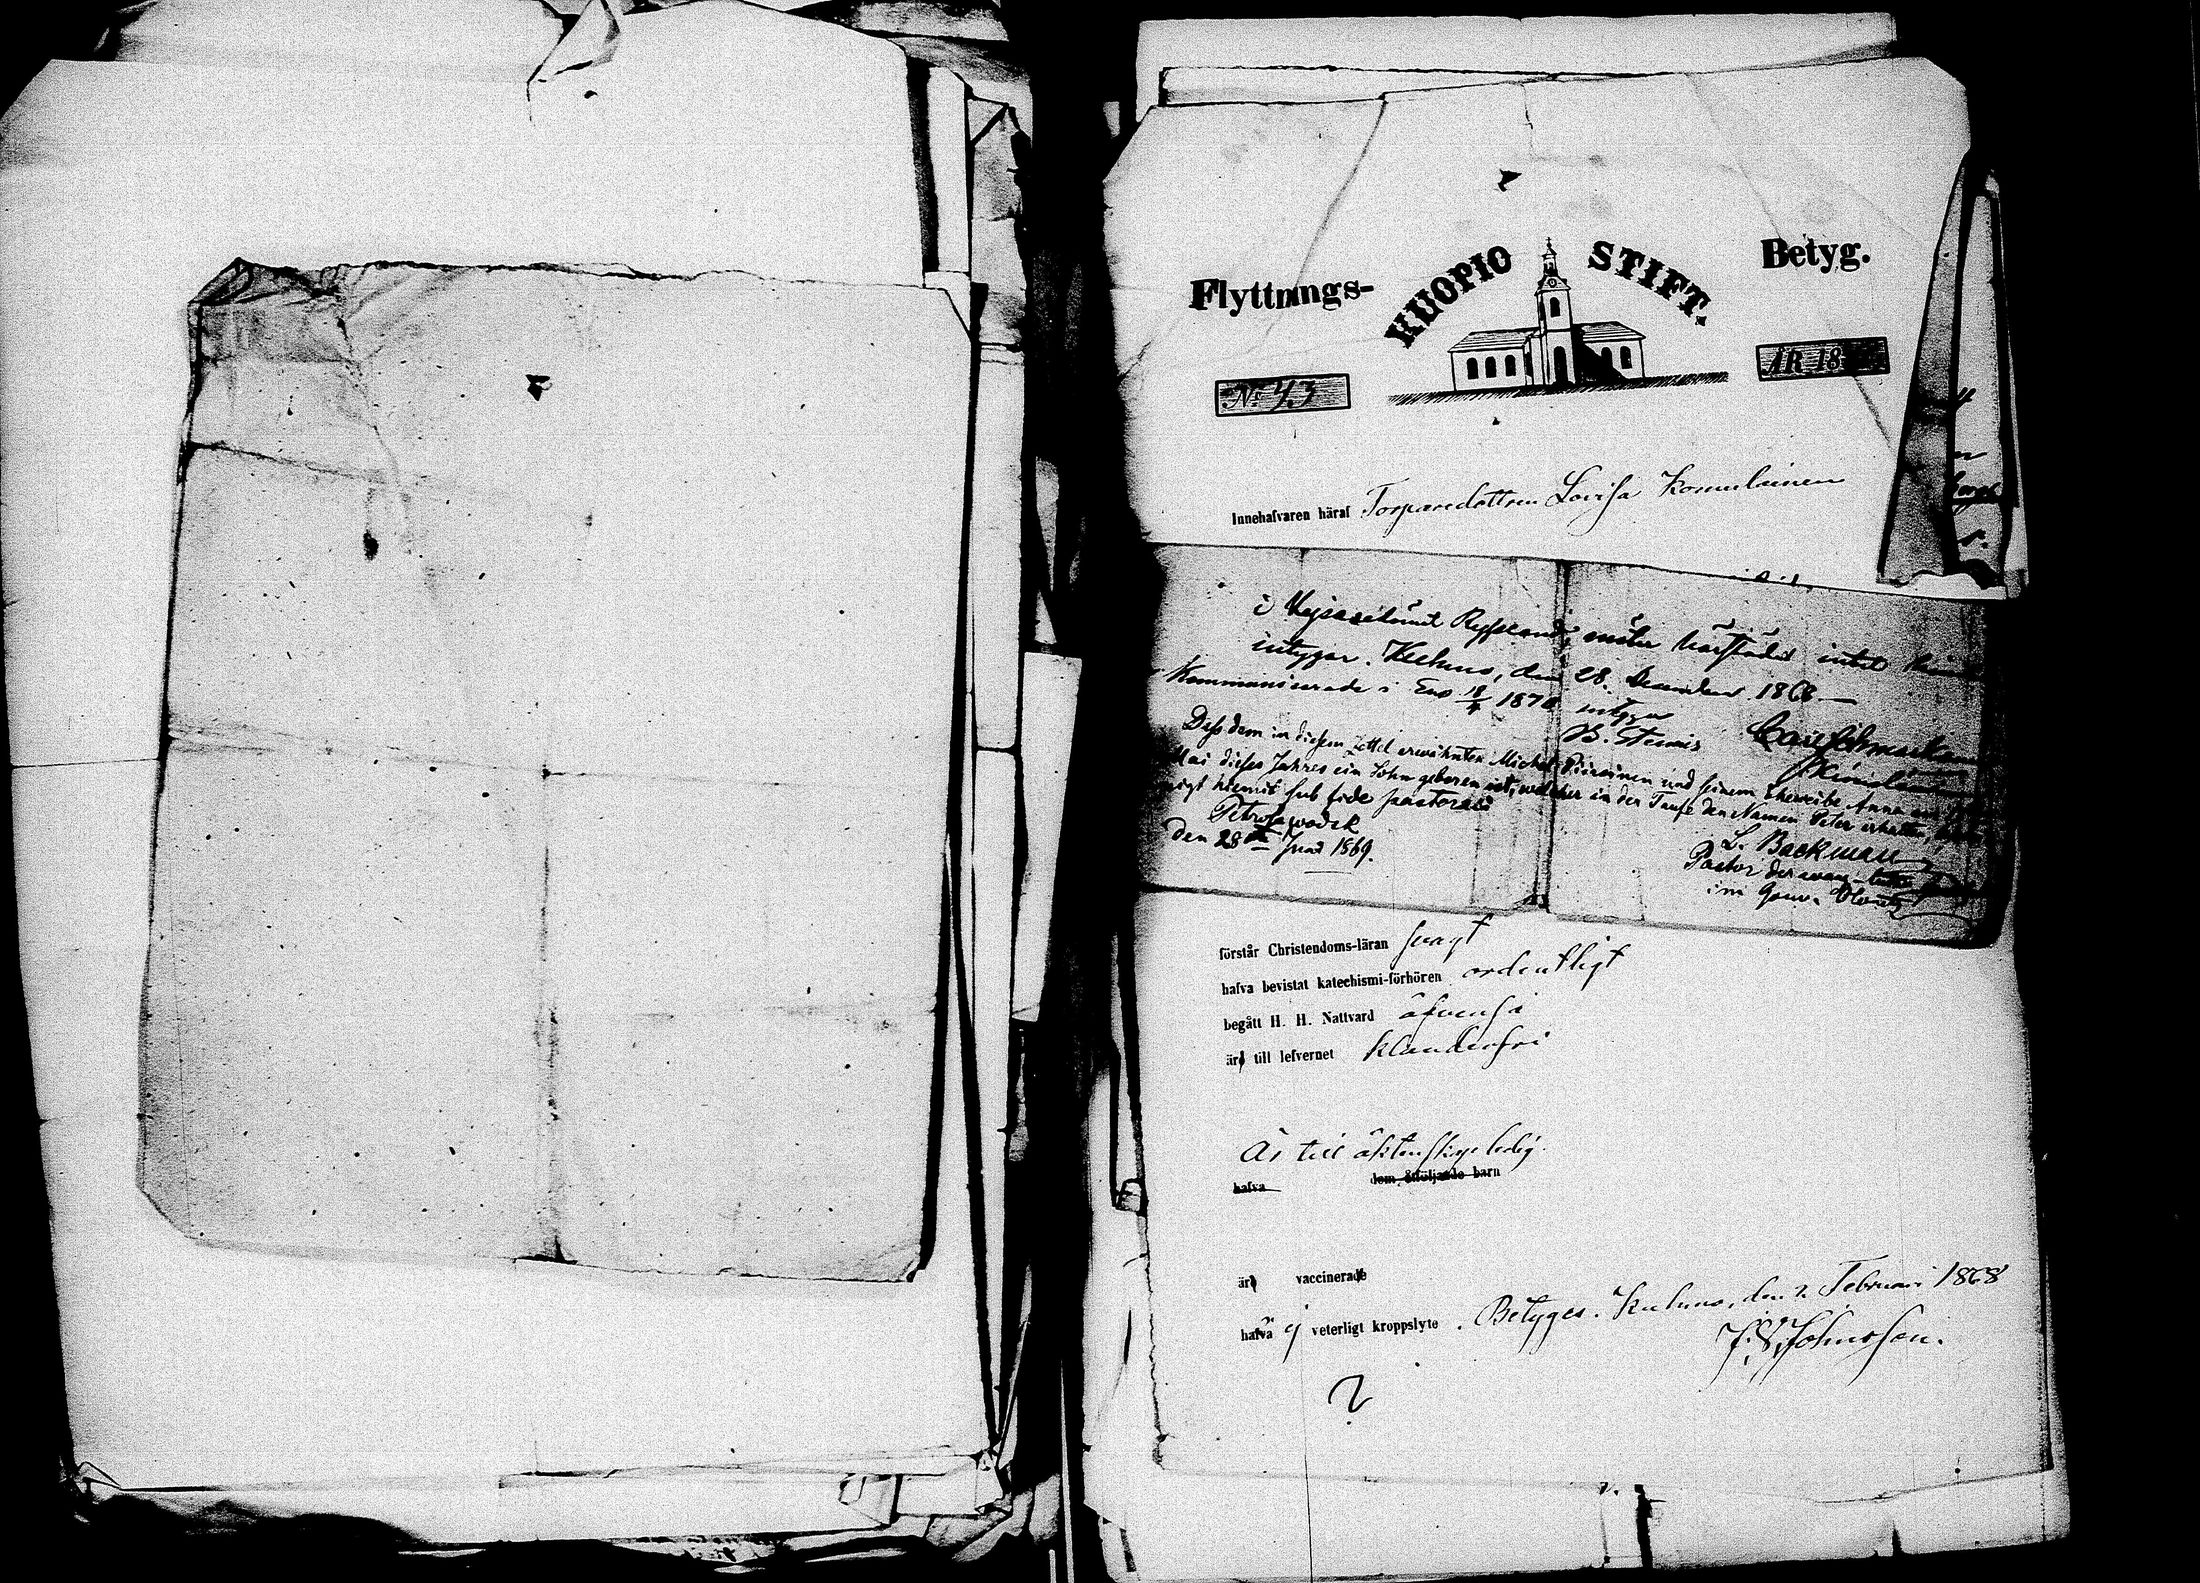 Flyttnings-
KUOPIO STIFT.
Betyg.
N:o 43
ÅR 18
Innehafvaren häraf Torparedottren Lovisa Komulainen
i Kejsaredömet Ryssland, måtte härstädes intet
intygar. Kuhmo, den 28. December 1868.—
Kommunicerade i Eno 18/4 1870 intygar
Dass dem in diesem Zettel erwähnten Michel Piirainen und seinem Eheweibe Anna am
Mai dieses Jahres ein Sohn geboren ist, welcher in der Taufe den Namen Peter erhalten,
hiemit sub fide pastorali
Petrosawodsk
den 28ten Juni 1869.
L. Backman
Pastor der evang.-luth.
im Gouv. Olonetz
förstår Christendoms-läran svagt
hafva bevistat katechismi-förhören ordentligt
begått H. H. Nattvard äfvenså
äro till lefvernet klanderfri
Är till äktenskap ledig.
hafva dem åtföljande barn
äro vaccinerade
hafva ej veterligt kroppslyte. Betygar. Kuhmo, den 2 Februari 1868
J. S. Johnsson.